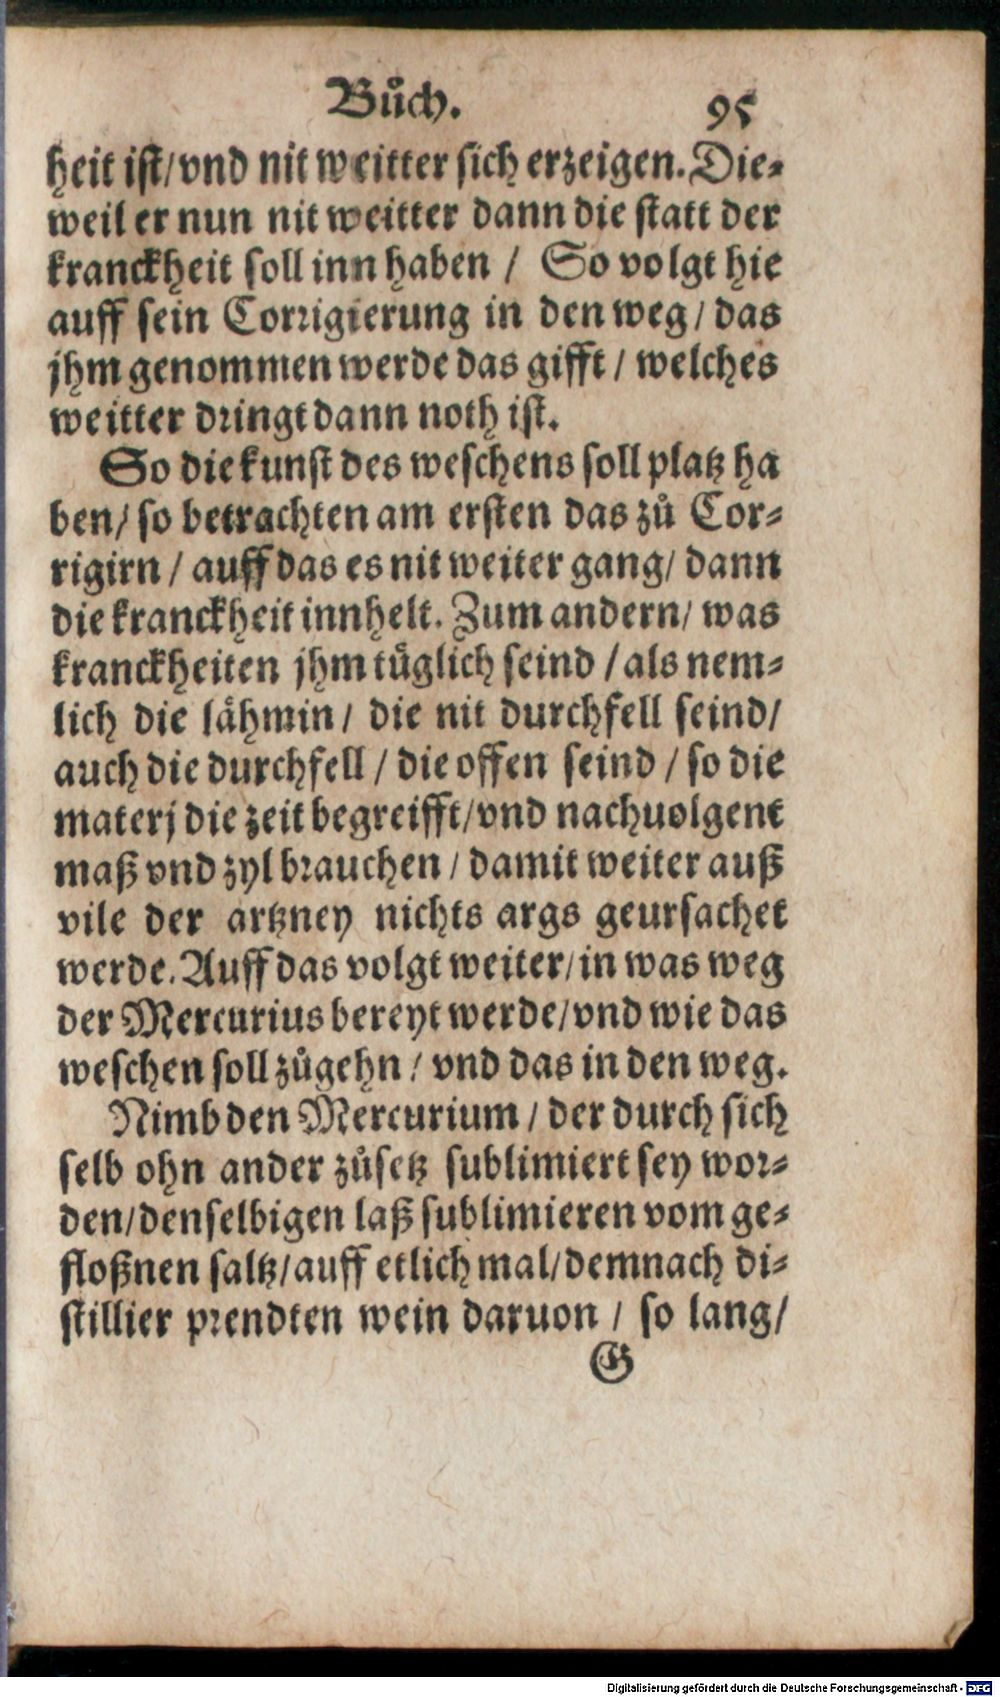 Bůch. 95
heit ist/vnd nit weitter sich erzeigen. Die-
weil er nun nit weitter dann die statt der
kranckheit soll inn haben / So volgt hie
auff sein Corrigierung in den weg/ das
jhm genommen werde das gifft / welches
weitter dringt dann noth ist.
So die kunst des weschens soll platz ha
ben/ so betrachten am ersten das zů Cor-
rigirn / auff das es nit weiter gang/ dann
die kranckheit innhelt. Zum andern/ was
kranckheiten jhm tüglich seind / als nem-
lich die lähmin/ die nit durchfell seind/
auch die durchfell / die offen seind / so die
materj die zeit begreifft/vnd nachuolgent
maß vnd zyl brauchen / damit weiter auß
vile der artzney nichts args geursachet
werde. Auff das volgt weiter/in was weg
der Mercurius bereyt werde/vnd wie das
weschen soll zůgehn / vnd das in den weg.
Nimb den Mercurium / der durch sich
selb ohn ander zůsetz sublimiert sey wor-
den/denselbigen laß sublimieren vom ge-
floßnen saltz/auff etlich mal/demnach di-
stillier prendten wein daruon / so lang/
G
Digitalisierung gefördert durch die Deutsche Forschungsgemeinschaft - DFG